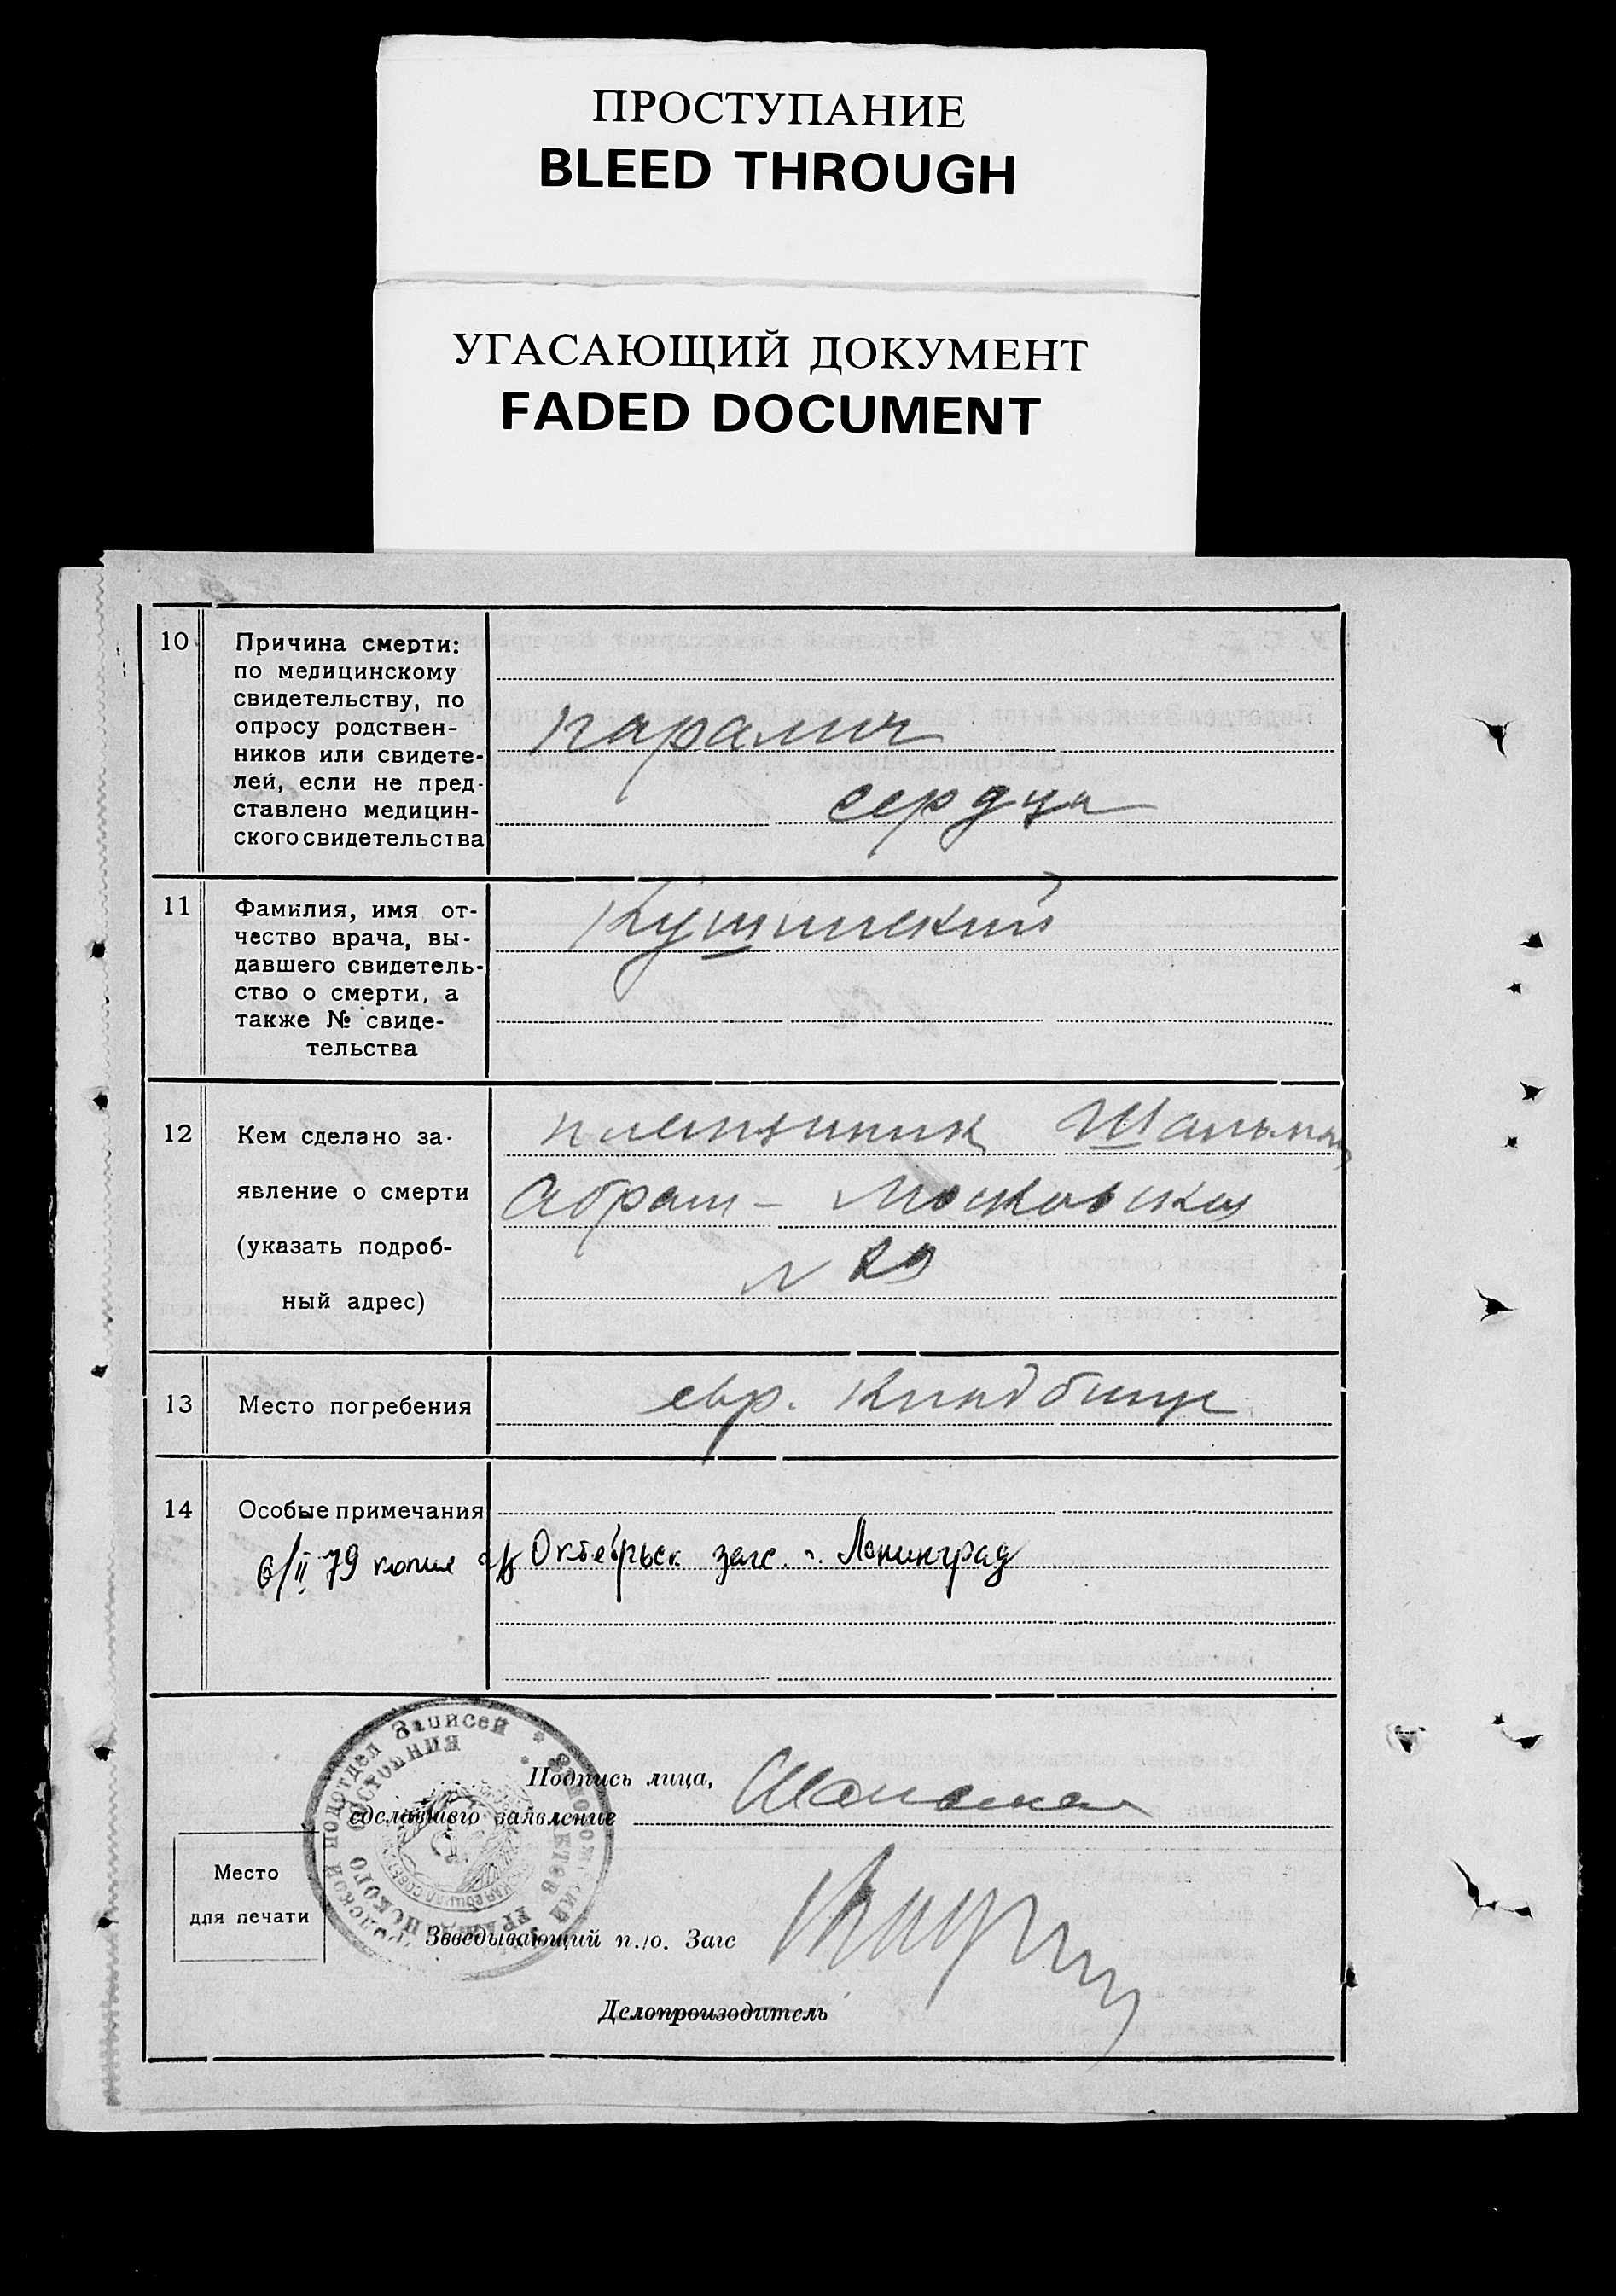 ПРОСТУПАНИЕ
BLEED THROUGH
УГАСАЮЩИЙ ДОКУМЕНТ
FADED DOCUMENT
10 Причина смерти:
по медицинскому
свидетельству, по
опросу родствен-
ников или свидете-
лей, если не пред-
ставлено медицин-
ского свидетельства
паралич
сердца
11 Фамилия, имя от-
чество врача, вы-
давшего свидетель-
ство о смерти, а
также № свиде-
тельства
12 Кем сделано за-
явление о смерти
(указать подроб-
ный адрес)
племянник
Абрам – Московская
N 29
13 Место погребения
евр. кладбище
14 Особые примечания
6/II 79 копия в Октябрьск. загс. г. Ленинград
Подпись лица,
сделавшего заявление
Место
для печати
Заведывающий п./о. Загс
Делопроизводитель